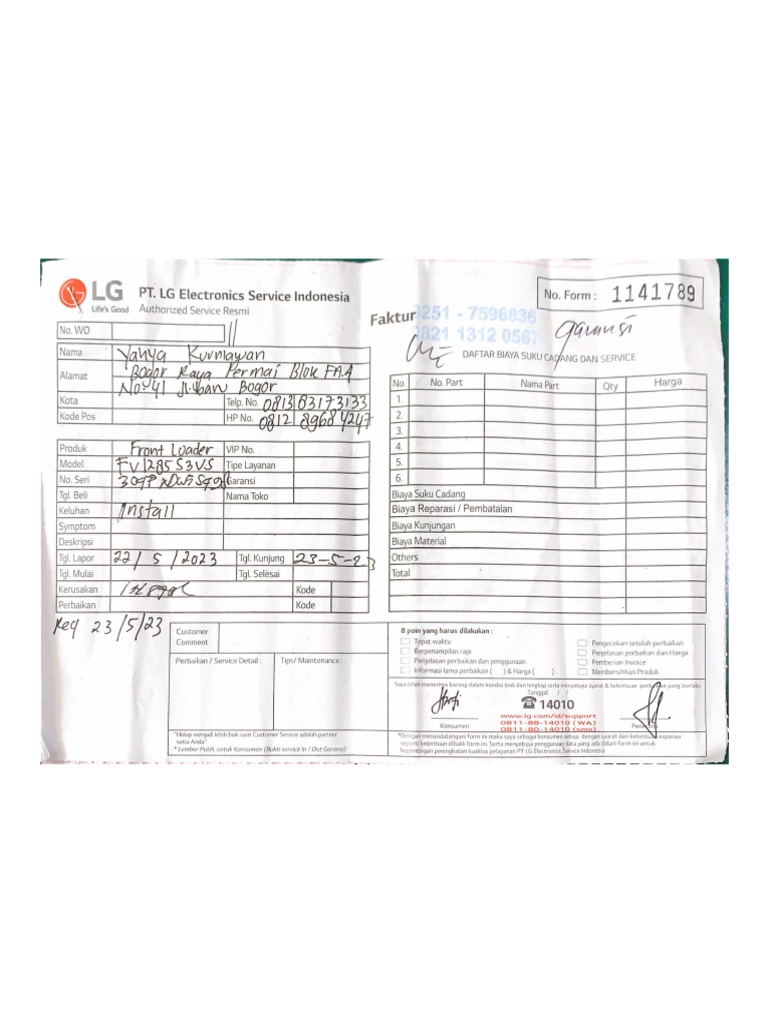 LG
Life's Good
PT. LG Electronics Service Indonesia
Authorized Service Resmi
No. WO
Nama Yahya Kurniawan
Alamat Bogor Raya Permai Blok FA.4
No. 41 Bogor
Kota Telp. No. 0813 83173133
Kode Pos HP No. 0812 8968 4247
Produk Front Loader VIP No.
Model FV1285S3VS Tipe Layanan
No. Seri Garansi
Tgl. Beli Nama Toko
Keluhan Install
Symptom
Deskripsi
Tgl. Lapor 22/5/2023 Tgl. Kunjung 23-5-23
Tgl. Mulai Tgl. Selesai
Kerusakan Kode
Perbaikan Kode
Req 23/5/23
Customer
Comment
Perbaikan / Service Detail : Tips/ Maintenance :
"Hidup menjadi lebih baik saat Customer Service adalah partner
setia Anda"
* Lembar Putih, untuk Konsumen (Bukti service In / Out Garansi)
No. Form : 1141789
Faktur 0251 - 7596836
0821 1312 0567
garansi
DAFTAR BIAYA SUKU CADANG DAN SERVICE
No. No. Part Nama Part Qty Harga
1.
2.
3.
4.
5.
6.
Biaya Suku Cadang
Biaya Reparasi / Pembatalan
Biaya Kunjungan
Biaya Material
Others
Total
8 poin yang harus dilakukan :
Tepat waktu Pengecekan setelah perbaikan
Berpenampilan rapi Penjelasan perbaikan dan Harga
Penjelasan perbaikan dan penggunaan Pemberian Invoice
Informasi lama perbaikan ( ) & Harga ( ) Membersihkan Produk
Saya telah menerima barang dalam kondisi baik dan lengkap serta menyetujui syarat & ketentuan perbaikan yang berlaku
Tanggal: / /
14010
www.lg.com/id/support
0811-88-14010 (WA)
0811-80-14010 (sms)
Konsumen
*Dengan menandatangani form ini maka saya sebagai konsumen setuju dengan syarat dan ketentuan reparasi
seperti ketentuan dibalik form ini. Serta menyetujui penggunaan data yang ada dalam form ini untuk
kepentingan peningkatan kualitas pelayanan PT LG Electronics Service Indonesia